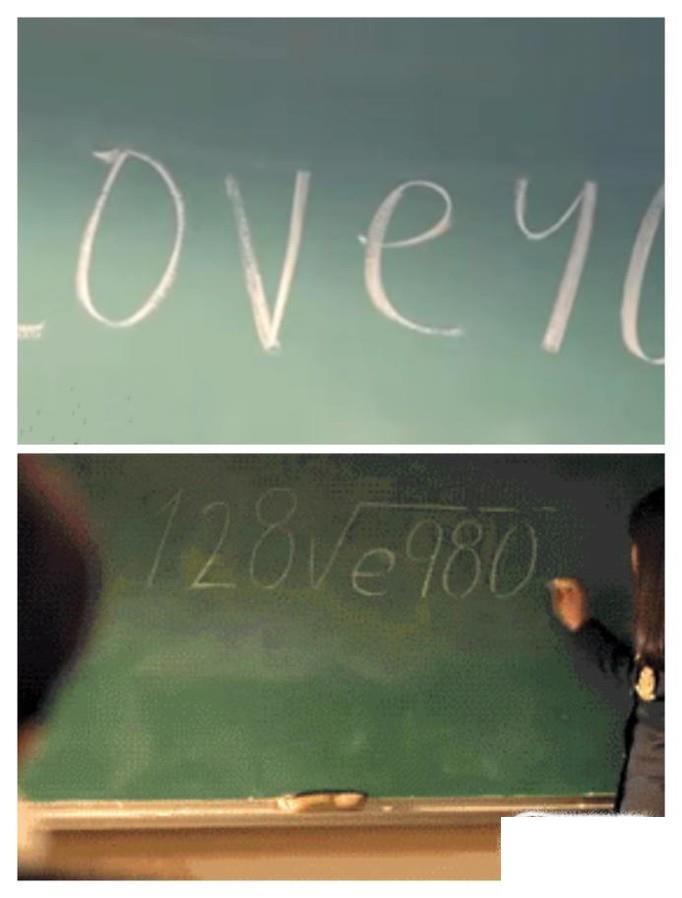 Love yo
128√e980